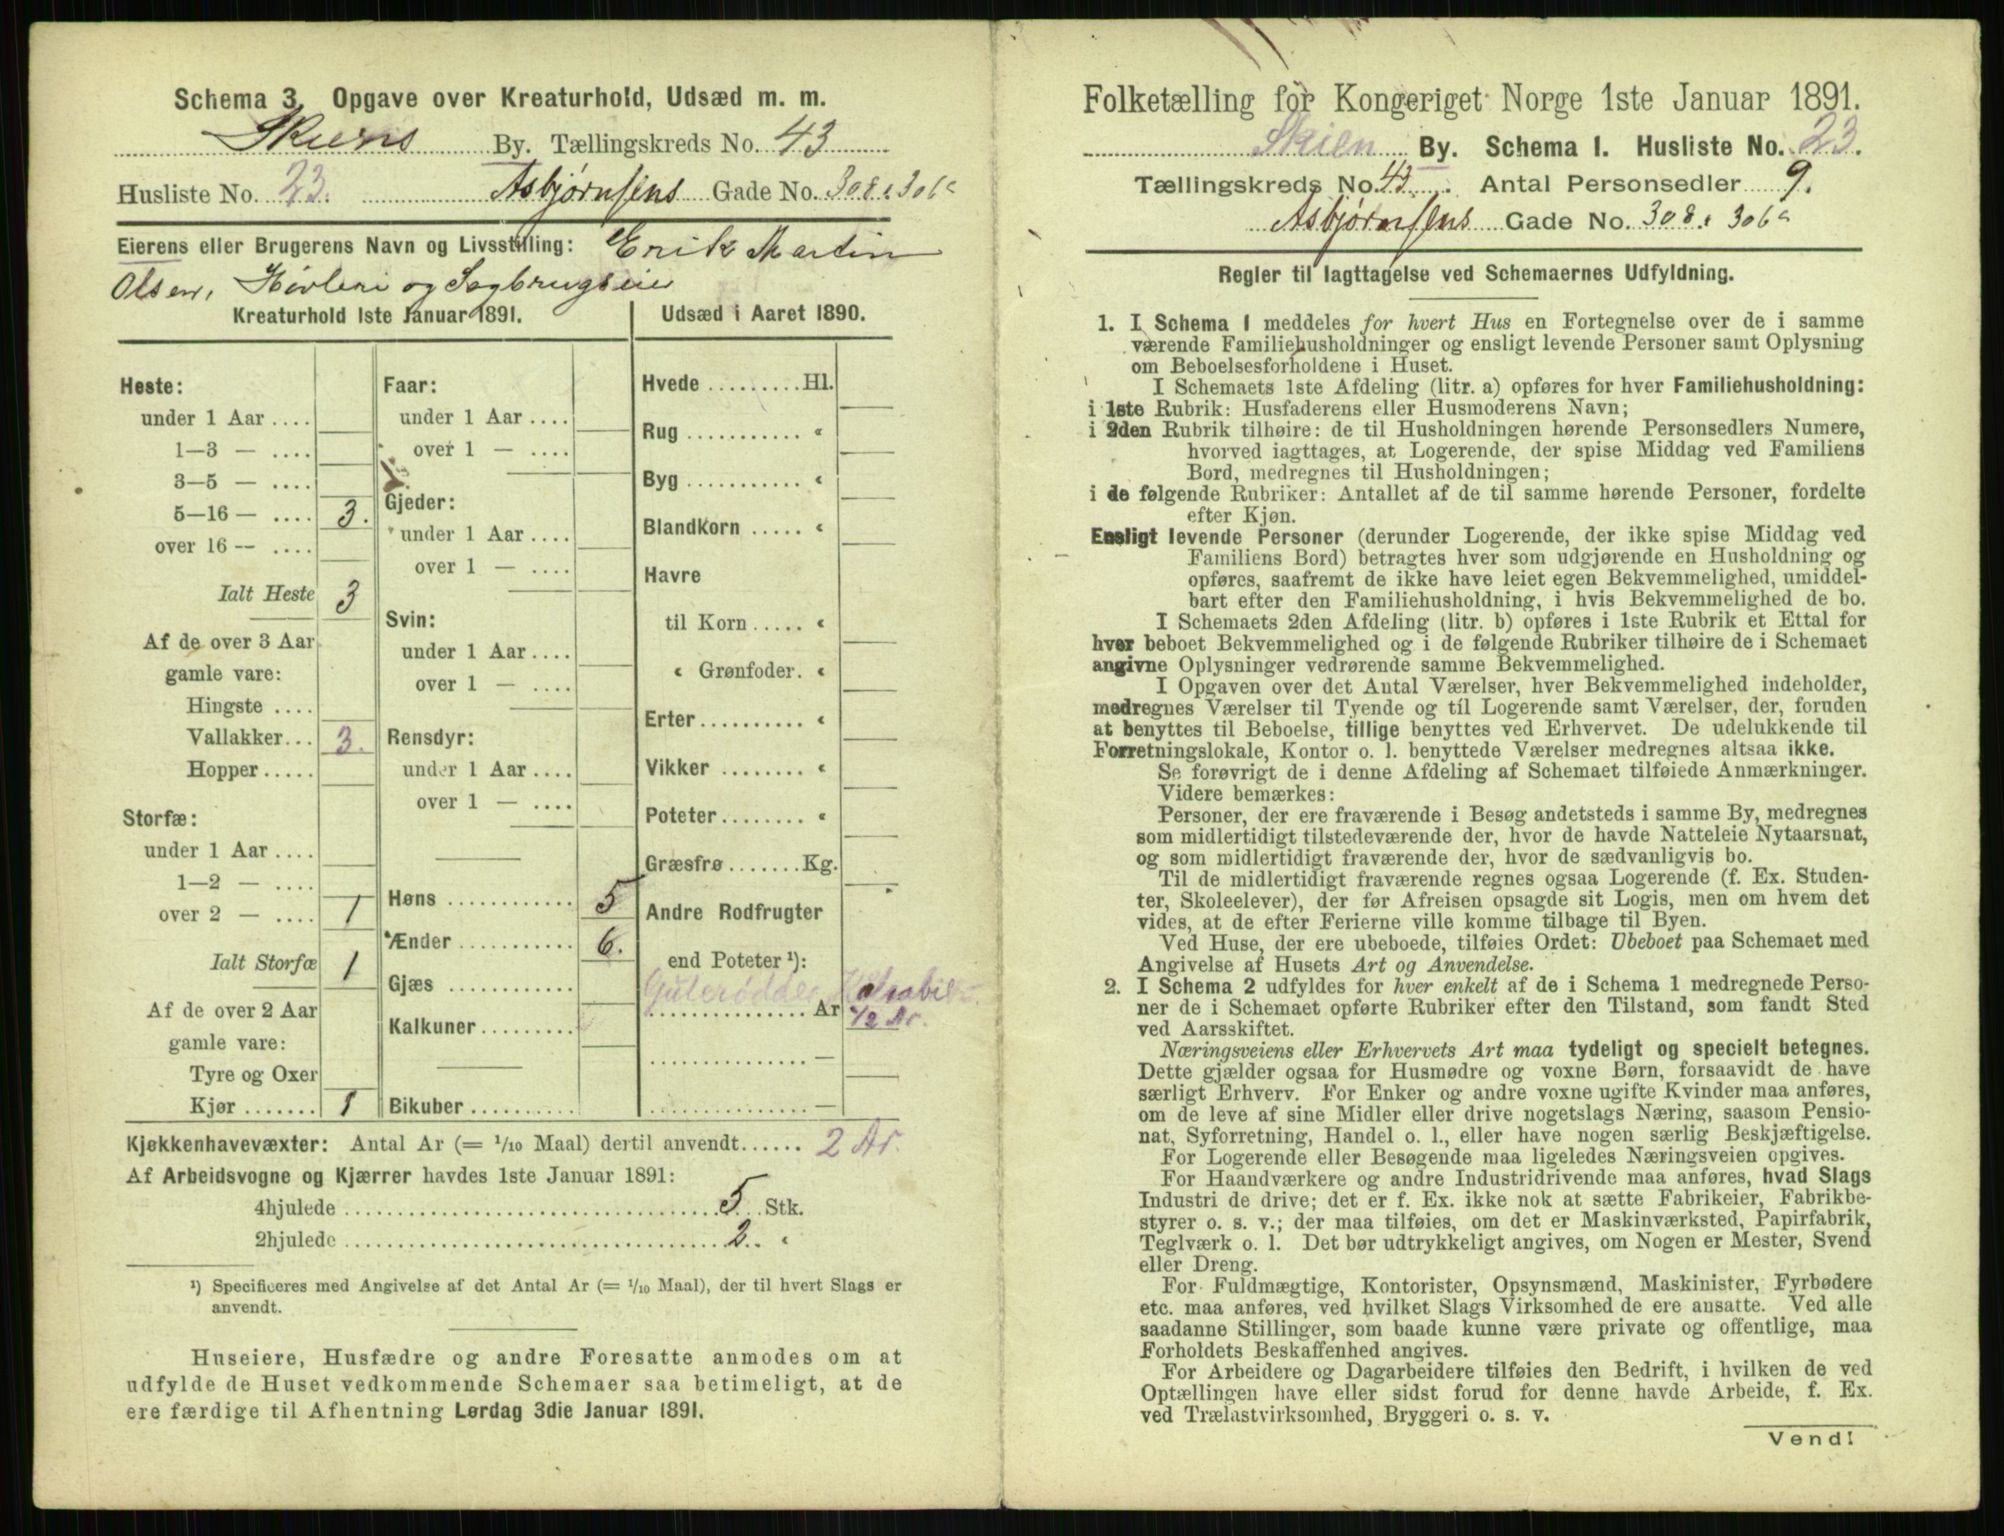 Schema 3. Opgave over Kreaturhold, Udsæd m. m.
Skiens By. Tællingskreds No. 43
Husliste No. 23. Asbjørnsens Gade No. 308 & 306a
Eierens eller Brugerens Navn og Livsstilling: Erik Martin
Olsen, Høvleri og Sagbrugseier
Kreaturhold 1ste Januar 1891.
Heste:
under 1 Aar ....
1—3 — ....
3—5 — ....
5—16 — .... 3.
over 16 — ....
Ialt Heste 3
Af de over 3 Aar
gamle vare:
Hingste ....
Vallakker... 3.
Hopper.....
Storfæ:
under 1 Aar ....
1—2 — ....
over 2 — .... 1
Ialt Storfæ 1
Af de over 2 Aar
gamle vare:
Tyre og Oxer
Kjør ....... 1
Faar:
under 1 Aar ....
over 1 — ....
Gjeder:
under 1 Aar....
over 1 — ....
Svin:
under 1 Aar....
over 1 — ....
Rensdyr:
under 1 Aar....
over 1 — ....
Høns ............ 5
Ænder ........... 6.
Gjæs ............
Kalkuner.........
Bikuber ..........
Udsæd i Aaret 1890.
Hvede .........Hl.
Rug ........... «
Byg ........... «
Blandkorn ..... «
Havre
til Korn ..... «
« Grønfoder. «
Erter.......... «
Vikker ........ «
Poteter........ «
Græsfrø .......Kg.
Andre Rodfrugter
end Poteter ¹):
............... Ar 1/2 Ar.
............... —
............... —
Kjøkkenhavevæxter: Antal Ar (= 1/10 Maal) dertil anvendt...... 2 Ar.
Af Arbeidsvogne og Kjærrer havdes 1ste Januar 1891:
4hjulede ........................................ 5 Stk.
2hjulede ........................................ 2 «
¹) Specificeres med Angivelse af det Antal Ar (= 1/10 Maal), der til hvert Slags er
anvendt.
Huseiere, Husfædre og andre Foresatte anmodes om at
udfylde de Huset vedkommende Schemaer saa betimeligt, at de
ere færdige til Afhentning Lørdag 3die Januar 1891.
Folketælling for Kongeriget Norge 1ste Januar 1891.
Skien By. Schema 1. Husliste No. 23.
Tællingskreds No. 43. Antal Personsedler 9.
Asbjørnsens Gade No. 308 & 306a
Regler til Iagttagelse ved Schemaernes Udfyldning.
1. I Schema 1 meddeles for hvert Hus en Fortegnelse over de i samme
værende Familiehusholdninger og ensligt levende Personer samt Oplysning
om Beboelsesforholdene i Huset.
I Schemaets 1ste Afdeling (litr. a) opføres for hver Familiehusholdning:
i 1ste Rubrik: Husfaderens eller Husmoderens Navn;
i 2den Rubrik tilhøire: de til Husholdningen hørende Personsedlers Numere,
hvorved iagttages, at Logerende, der spise Middag ved Familiens
Bord, medregnes til Husholdningen;
i de følgende Rubriker: Antallet af de til samme hørende Personer, fordelte
efter Kjøn.
Ensligt levende Personer (derunder Logerende, der ikke spise Middag ved
Familiens Bord) betragtes hver som udgjørende en Husholdning og
opføres, saafremt de ikke have leiet egen Bekvemmelighed, umiddel-
bart efter den Familiehusholdning, i hvis Bekvemmelighed de bo.
I Schemaets 2den Afdeling (litr. b) opføres i 1ste Rubrik et Ettal for
hver beboet Bekvemmelighed og i de følgende Rubriker tilhøire de i Schemaet
angivne Oplysninger vedrørende samme Bekvemmelighed.
I Opgaven over det Antal Værelser, hver Bekvemmelighed indeholder,
medregnes Værelser til Tyende og til Logerende samt Værelser, der, foruden
at benyttes til Beboelse, tillige benyttes ved Erhvervet. De udelukkende til
Forretningslokale, Kontor o. l. benyttede Værelser medregnes altsaa ikke.
Se forøvrigt de i denne Afdeling af Schemaet tilføiede Anmærkninger.
Videre bemærkes:
Personer, der ere fraværende i Besøg andetsteds i samme By, medregnes
som midlertidigt tilstedeværende der, hvor de havde Natteleie Nytaarsnat,
og som midlertidigt fraværende der, hvor de sædvanligvis bo.
Til de midlertidigt fraværende regnes ogsaa Logerende (f. Ex. Studen-
ter, Skoleelever), der før Afreisen opsagde sit Logis, men om hvem det
vides, at de efter Ferierne ville komme tilbage til Byen.
Ved Huse, der ere ubeboede, tilføies Ordet: Ubeboet paa Schemaet med
Angivelse af Husets Art og Anvendelse.
2. I Schema 2 udfyldes for hver enkelt af de i Schema 1 medregnede Perso-
ner de i Schemaet opførte Rubriker efter den Tilstand, som fandt Sted
ved Aarsskiftet.
Næringsveiens eller Erhvervets Art maa tydeligt og specielt betegnes.
Dette gjælder ogsaa for Husmødre og voxne Børn, forsaavidt de have
særligt Erhverv. For Enker og andre voxne ugifte Kvinder maa anføres,
om de leve af sine Midler eller drive nogetslags Næring, saasom Pensio-
nat, Syforretning, Handel o. l., eller have nogen særlig Beskjæftigelse.
For Logerende eller Besøgende maa ligeledes Næringsveien opgives.
For Haandværkere og andre Industridrivende maa anføres, hvad Slags
Industri de drive; det er f. Ex. ikke nok at sætte Fabrikeier, Fabrikbe-
styrer o. s. v.; der maa tilføies, om det er Maskinværksted, Papirfabrik,
Teglværk o. l. Det bør udtrykkeligt angives, om Nogen er Mester, Svend
eller Dreng.
For Fuldmægtige, Kontorister, Opsynsmænd, Maskinister, Fyrbødere
etc. maa anføres, ved hvilket Slags Virksomhed de ere ansatte. Ved alle
saadanne Stillinger, som baade kunne være private og offentlige, maa
Forholdets Beskaffenhed angives.
For Arbeidere og Dagarbeidere tilføies den Bedrift, i hvilken de ved
Optællingen have eller sidst forud for denne havde Arbeide, f. Ex.
ved Trælastvirksomhed, Bryggeri o. s. v.
Vend!